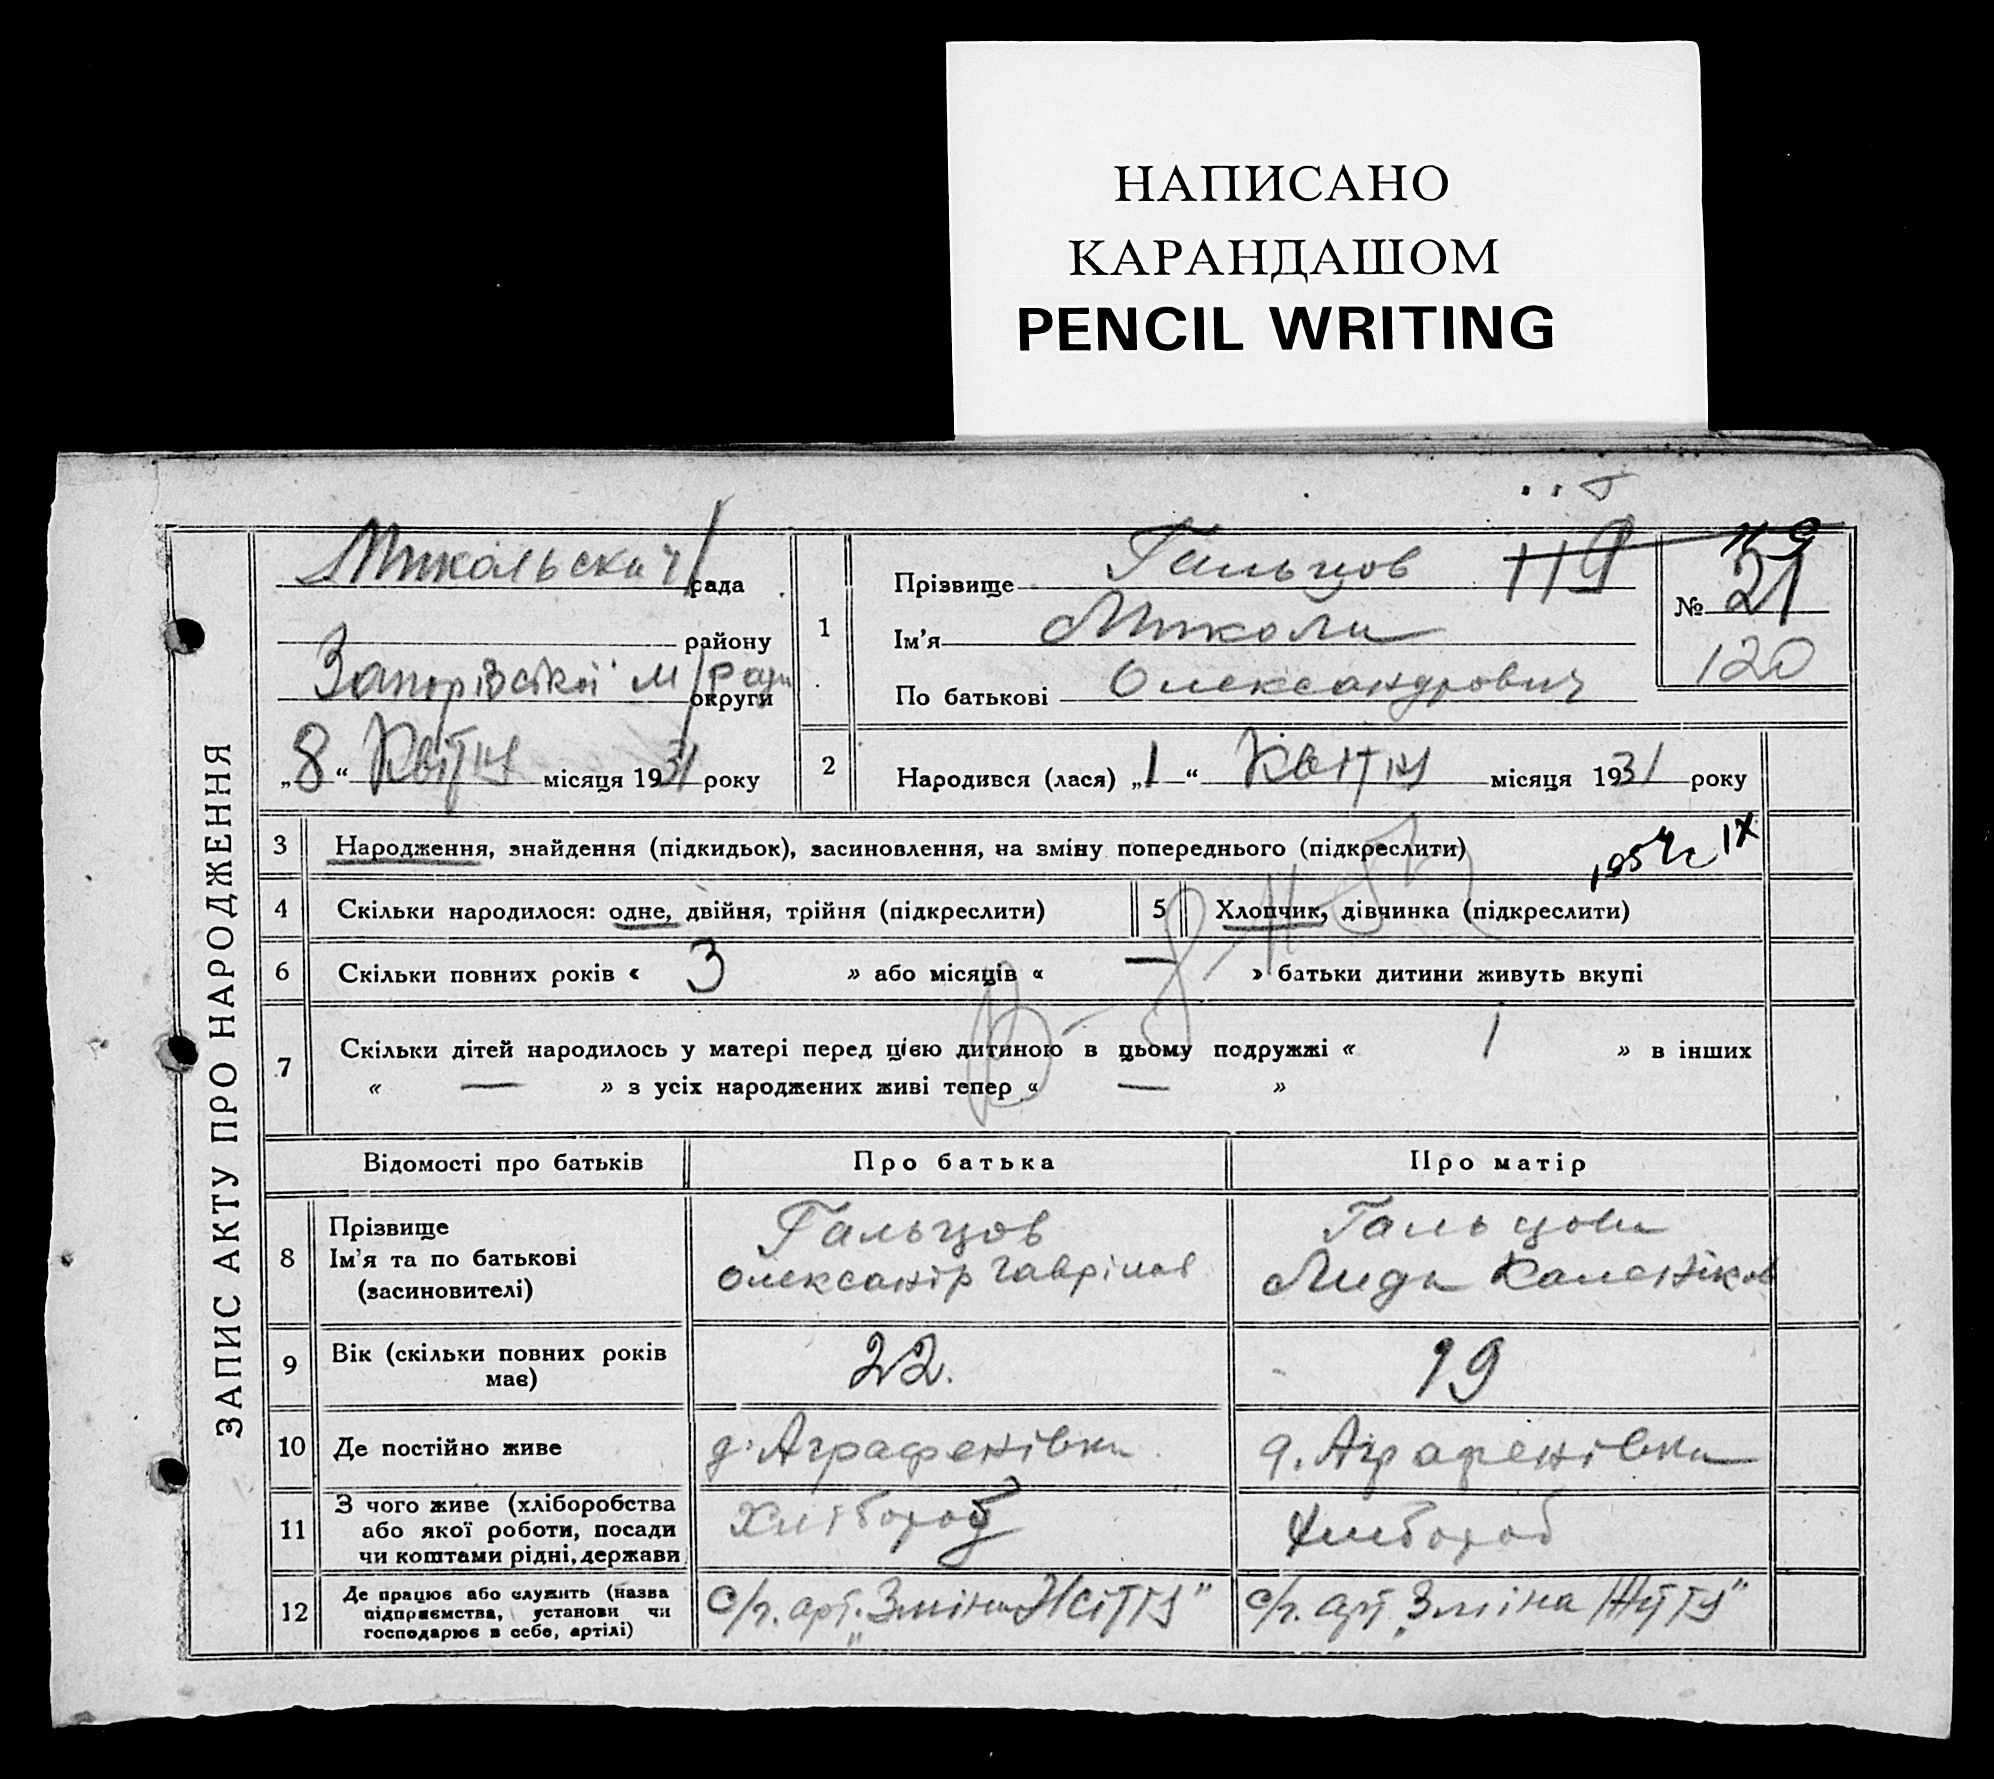 НАПИСАНО
КАРАНДАШОМ
PENCIL WRITING
ЗАПИС АКТУ ПРО НАРОДЖЕННЯ
рада
району
Запорізської м/Ради
округи
„8“ Квітня місяця 1931 року
1
Прізвище Гальцов 119
Ім’я Микола
По батькові Олександрович
119
№ 21
120
2 Народився (лася) „1“ Квітня місяця 1931 року
3 Народження, знайдення (підкидьок), засиновлення, на зміну попереднього (підкреслити)
4 Скільки народилося: одне, двійня, трійня (підкреслити) 5 Хлопчик, дівчинка (підкреслити)
6 Скільки повних років « 3 » або місяців « — » батьки дитини живуть вкупі
7 Скільки дітей народилось у матері перед цією дитиною в цьому подружжі « 1 » в інших
« — » з усіх народжених живі тепер « — »
Відомості про батьків Про батька Про матір
8 Прізвище Гальцов Гальцова
Ім’я та по батькові Олександр Гаврілов Лида
(засиновителі)
9 Вік (скільки повних років має) 22. 19
10 Де постійно живе д. Аграфенівка д. Аграфенівка
11 З чого живе (хліборобства
або якої роботи, посади Хлібороб Хлібороб
чи коштами рідні, держави
12 Де працює або служить (назва
підприємства, установи чи с/г. арт. „Зміна Життя“ с/г. арт. „Зміна Життя“
господарює в себе, артілі)